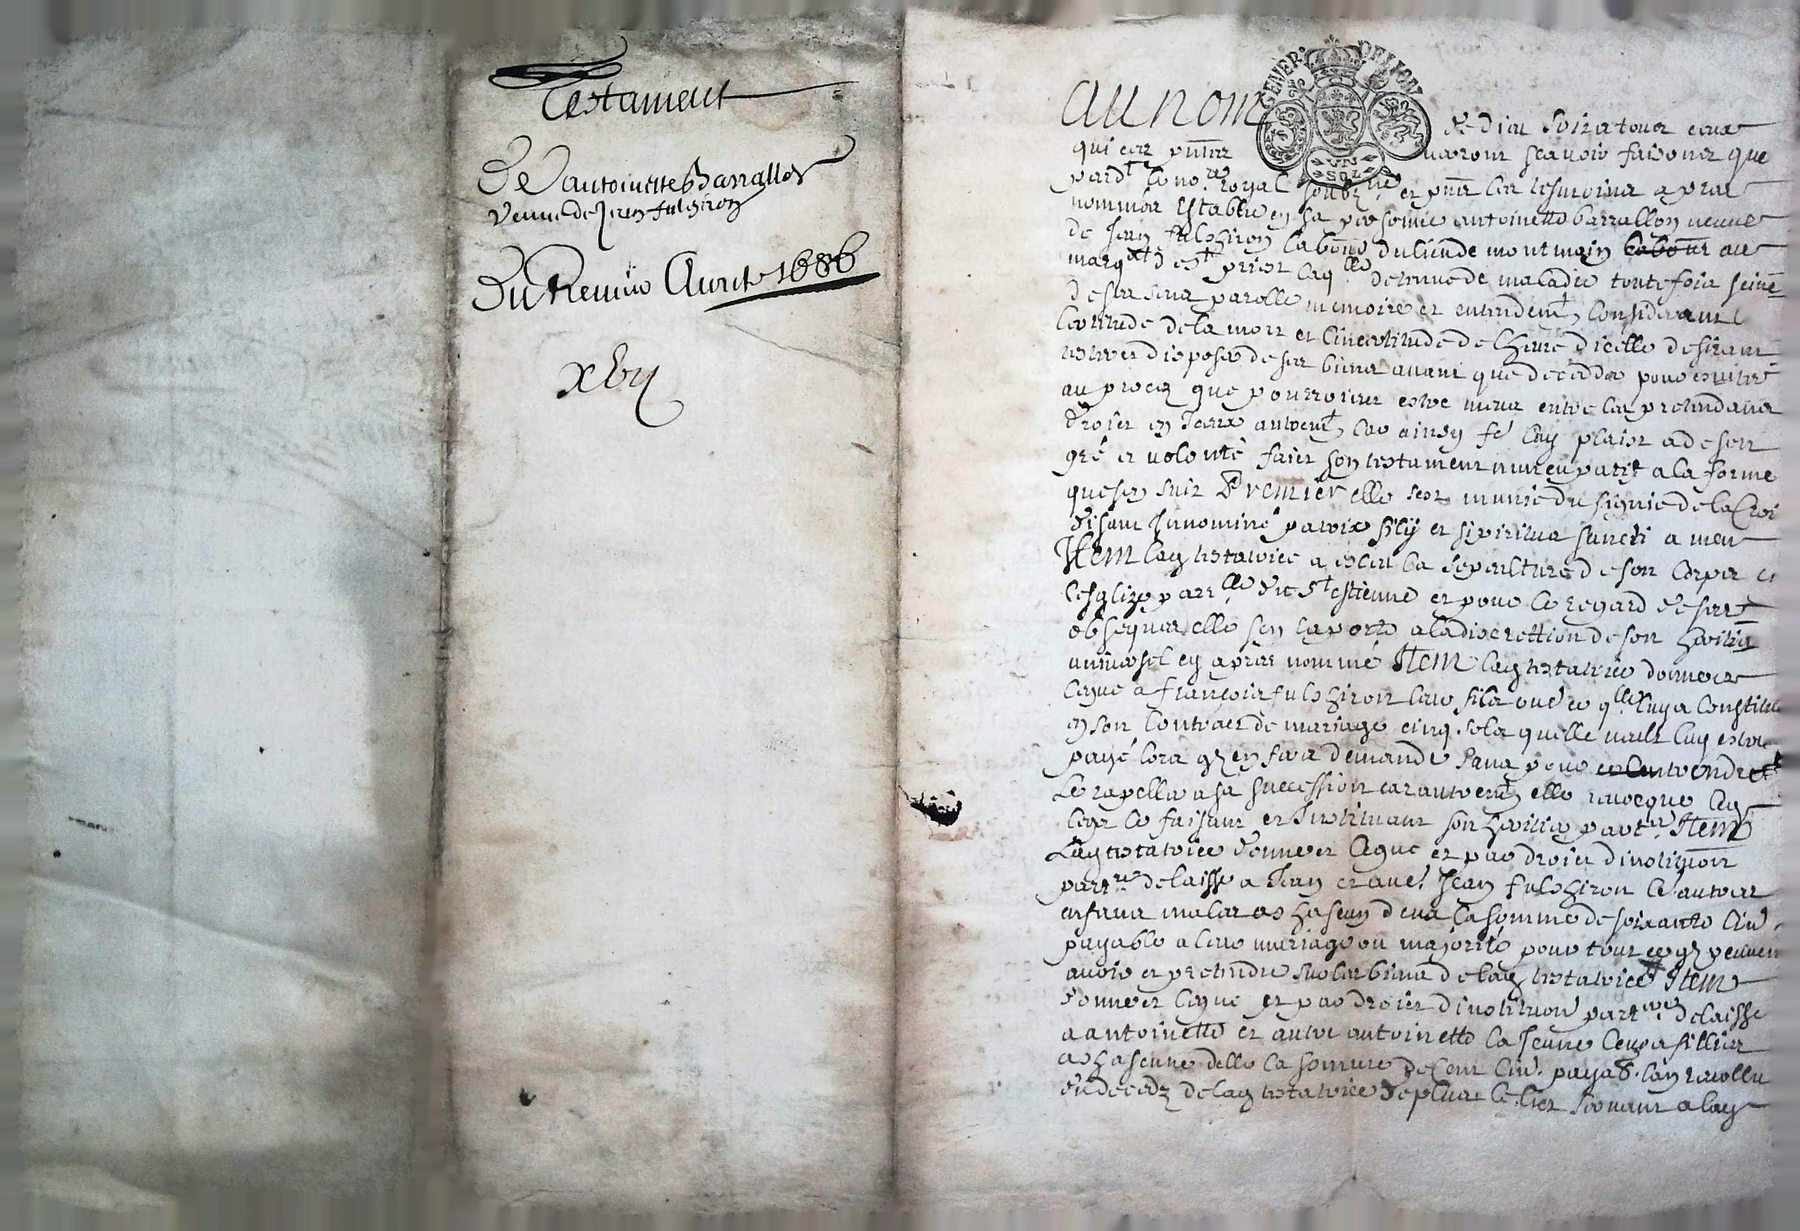 Testament
De antoinette barrallon
veuve de Jean fulchiron
Du premier Avril 1686
xbij
GENER. DE LYON
UN SOL
au nom de dieu soit a tous ceux
qui ces pntes verront scavoir faisons que
pardt le no.re royal soubz.né et pnts les tesmoins apres
nommés establie en sa personne antoinette barrallon veufve
de Jean fulchiron du lieu de montmain
marq.at d' st priest laq.lle detenue de maladie toutefois seine
de ses sens parolle memoire et entendemt considerant
certitude de la mort et lincertitude de lheure dicelle desirant
disposer de ses biens avant que deceder pour eviter
au proces que pourroient estre meus entre les pretendans
droict en iceux autremt car ainsy luy plaist a de son
gré et volonté faict son testament nuncupatif a la forme
que sen suit Premier elle sest munie du signe de la Croix
disant In nomine patris filij et spiritus sancti amen
Item lad testatrice a esleu la sepulture de son corps
lesglize parr.lle de st estienne et pour le regard de ses
obseques elle sen raporte a la discrettion de son heritier
universel cy apres nommé Item lad testatrice donne et
legue a françois fulchiron son filz outre ce q.lle luy a constitué
en son contract de mariage cinq solz quelle veult luy estre
payé lors qz en fera demande sans pouv
a sa succession car autremt elle revocque led
legz ce faisant et Instituant son heritier part.er Item
Lad testatrice donne et legue et par droict dinstitution
part.re delaisse a Jean et aue. Jean fulchiron ses autres
enfans malas a chascun deux la somme de soixante liv.
payable a leur mariage ou majorité pour tout ce qz peuvent
avoir et pretendre sur les biens de lad testatrice Item
donne et legue et par droict dinstitution part.re delaisse
a antoinette et autre antoinette la Jeune ses filles
a chascune delle la somme de cent liv. payab. lan revollu
du decedz de lad testatrice de plus le lict servant a lad